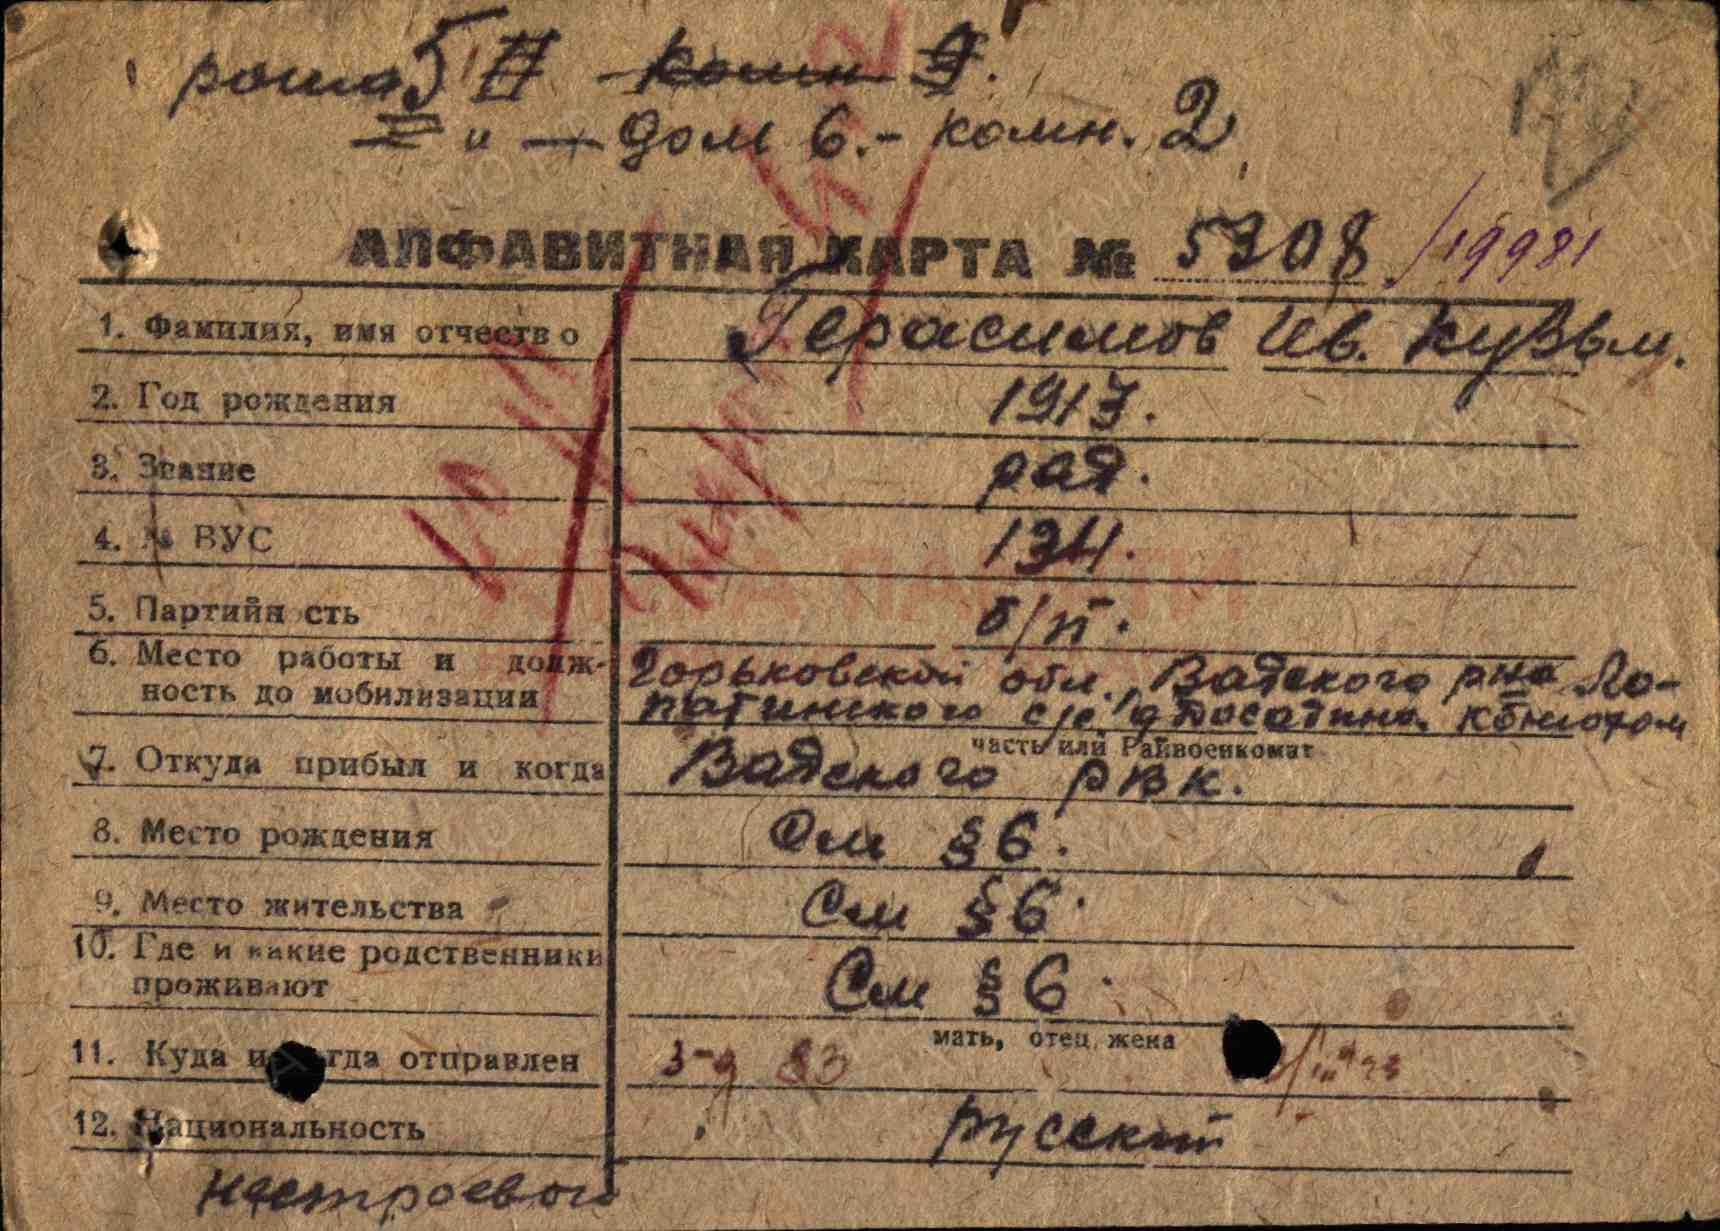 рота 5 II комн 9.
= и — дом 6.- комн. 2
АЛФАВИТНАЯ КАРТА № 5308 /19981
1. Фамилия, имя отчество Герасимов Ив. Кузьм.
2. Год рождения 1917.
3. Звание ряд.
4. № ВУС 134.
5. Партийн сть б/п.
6. Место работы и долж- Горьковской обл., Вадского рна Ло-
ность до мобилизации патинского с/с конюхом
часть или Райвоенкомат
7. Откуда прибыл и когда Вадского РВК.
8. Место рождения См § 6.
9. Место жительства См § 6.
10. Где и какие родственники
проживают См § 6.
мать, отец, жена
11. Куда и когда отправлен з-д 83
12. Национальность русский
нестроевой
КНИГА ПАМЯТИ